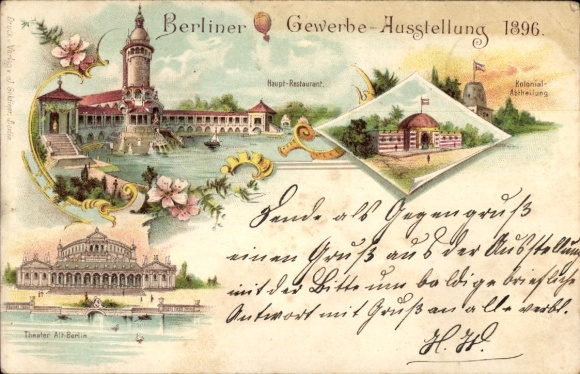 Berliner Gewerbe-Ausstellung 1896.
Haupt-Restaurant.
Kolonial-
Abtheilung
Theater Alt-Berlin
Sende als Gegengruß
einen Gruß aus der Ausstellung
mit der Bitte um baldige briefliche
Antwort mit Gruß an alle verbl.
H. W.